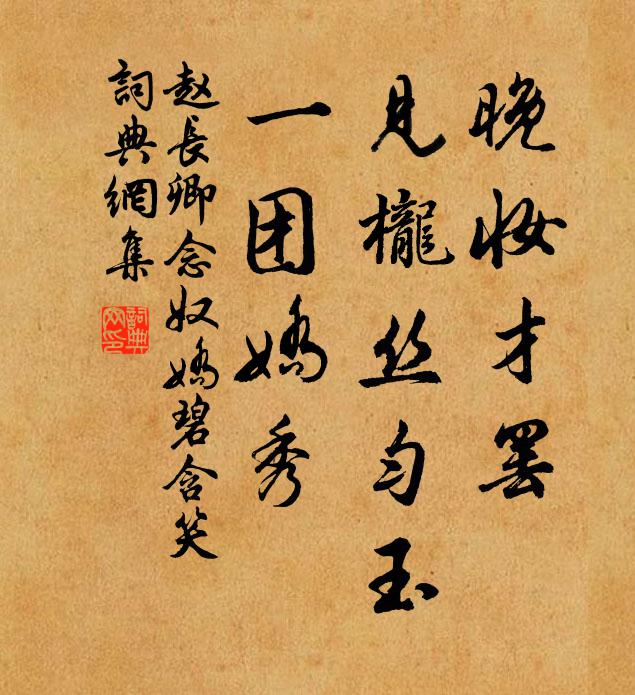 晚妆才罢
见櫳丝匀玉
一团嬌秀
赵長卿念奴嬌碧含笑
詞典網集
詞典網印